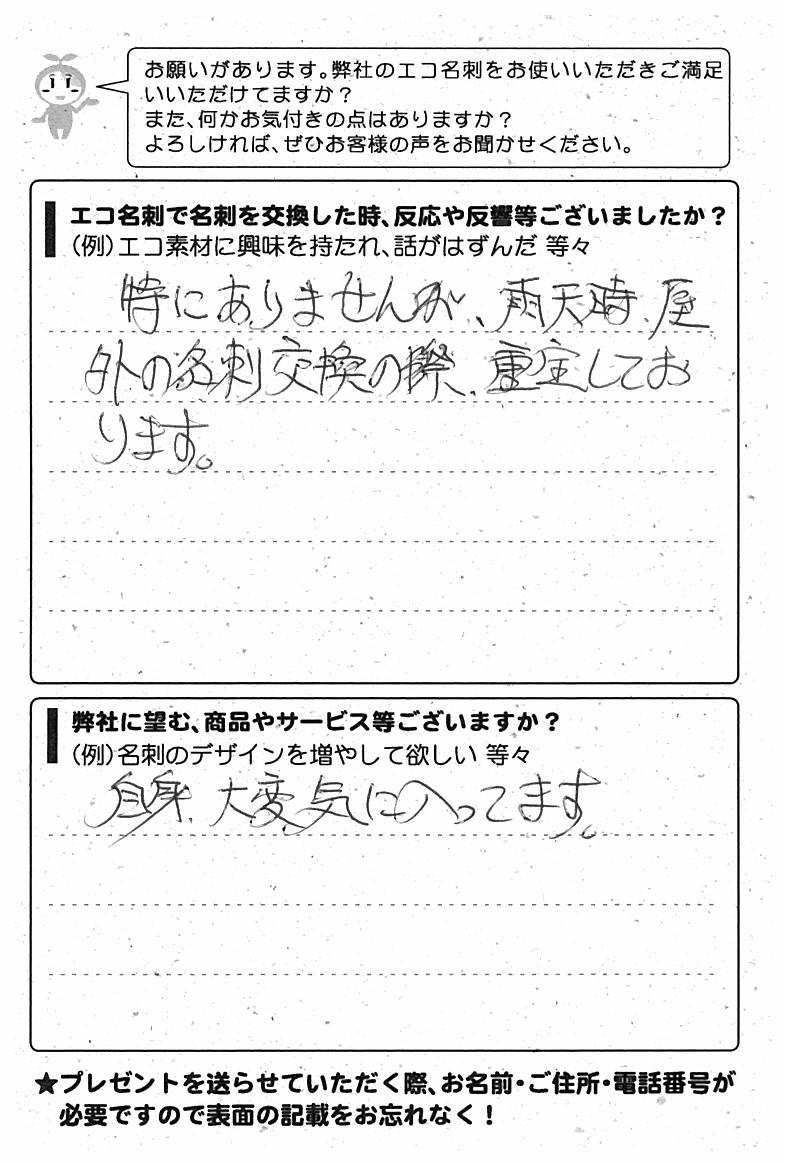 お願いがあります。弊社のエコ名刺をお使いいただきご満足
いいただけてますか？
また、何かお気付きの点はありますか？
よろしければ、ぜひお客様の声をお聞かせください。
エコ名刺で名刺を交換した時、反応や反響等ございましたか？
（例）エコ素材に興味を持たれ、話がはずんだ 等々
特にありませんが、雨天時、屋
外の名刺交換の際、重宝してお
ります。
弊社に望む、商品やサービス等ございますか？
（例）名刺のデザインを増やして欲しい 等々
自身、大変気に入ってます。
★プレゼントを送らせていただく際、お名前・ご住所・電話番号が
必要ですので表面の記載をお忘れなく！